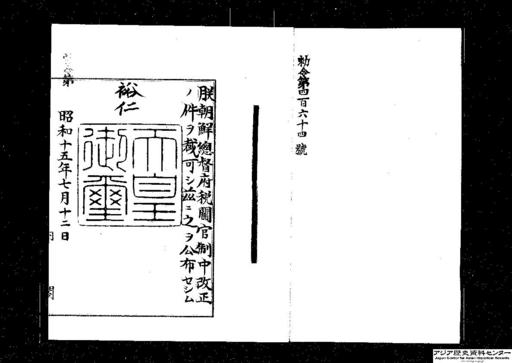 勅令第四百六十四號
朕朝鮮總督府税關官制中改正
ノ件ヲ裁可シ茲ニ之ヲ公布セシム
裕仁
天皇
御璽
昭和十五年七月十二日
アジア歴史資料センター
Japan Center for Asian Historical Records